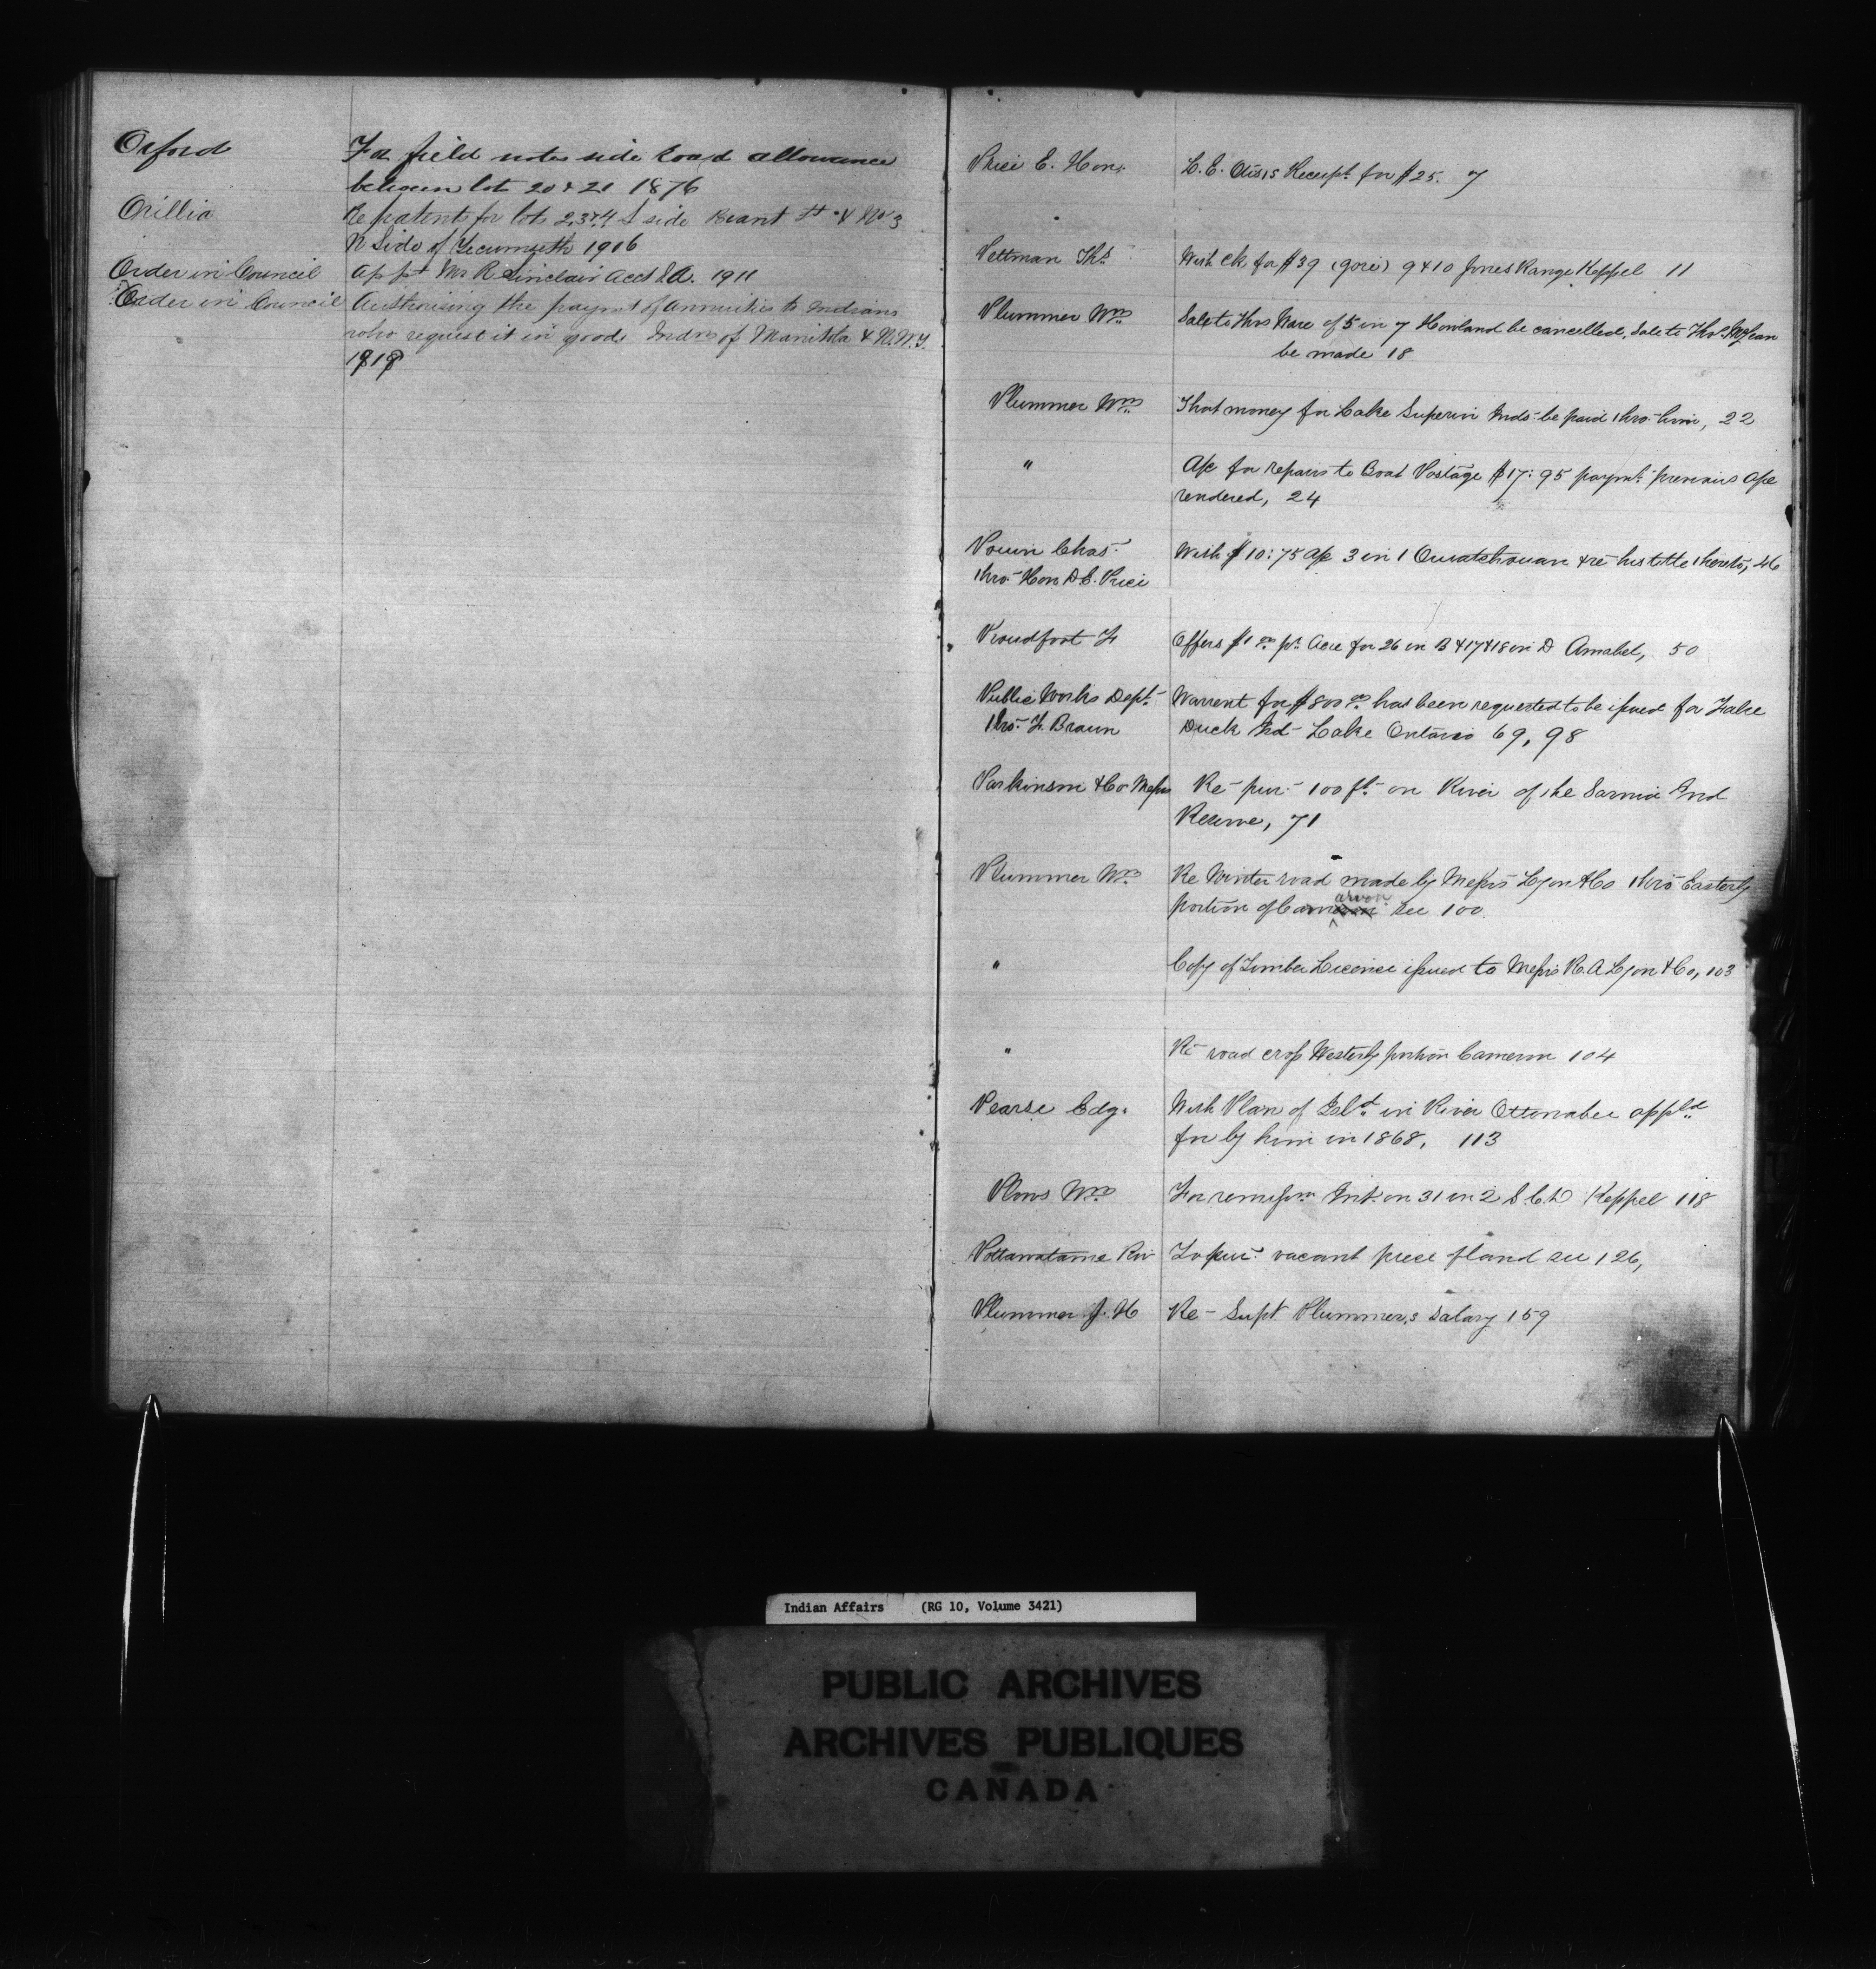 Oxford For field notes side road allowance
between lots 20 & 21 1876
Orillia Re patent for lots 2, 3 & 4 S side Brant St & No 3
N Side of Tecumseth 1906
Order in Council app't Mr R Sinclair Acct I.A. 1911
Order in Council Authorising the paymt of annuities to Indians
who request it in goods Indns of Manitoba & N.W.T.
1919
Price E. Hon. L. E. Otis's Receipt for $25. 7
Pettman Ths With ck for $39 (gore) 9 & 10 Jones Range Keppel 11
Plummer Wm Sale to Thos Ware of 5 in 7 Howland be cancelled, Sale to Thos McLean
be made 18
Plummer Wm That money for Lake Superior Inds be paid thro him, 22
" A/c for repairs to Boat Postage $17:95 paymt previous a/c
rendered, 24
Chas With $10:75 a/c 3 in 1 Ouiatchouan & re his title thereto, 46
thro Hon D. E. Price
Proudfoot F Offers $1 00 pr Acre for 26 in B & 17 & 18 in D Amabel, 50
Public Works Dept Warrent for $800 00 has been requested to be issued for False
thro F. Braun Duck Isd Lake Ontario 69, 98
Parkinson & Co Messrs Re pur 100 ft on River of the Sarnia Ind
Reserve, 71
Plummer Wm Re Winter road made by Messrs Lyon & Co thro Easterly
arvon
portion of Cam see 100
" Copy of Timber Licence issued to Messrs R. A Lyon & Co, 103
" Re road cross Westerly portion Cameron 104
Pearse Edg. With Plan of Isld in River Ottonabee appld
for by him in 1868, 113
Wm For remissn Int on 31 in 2 S. C. D Keppel 118
Pottawatamie Riv To pur vacant piece of land see 126,
Plummer J. H Re Supt Plummer,s Salary 159
Indian Affairs (RG 10, Volume 3421)
PUBLIC ARCHIVES
ARCHIVES PUBLIQUES
CANADA